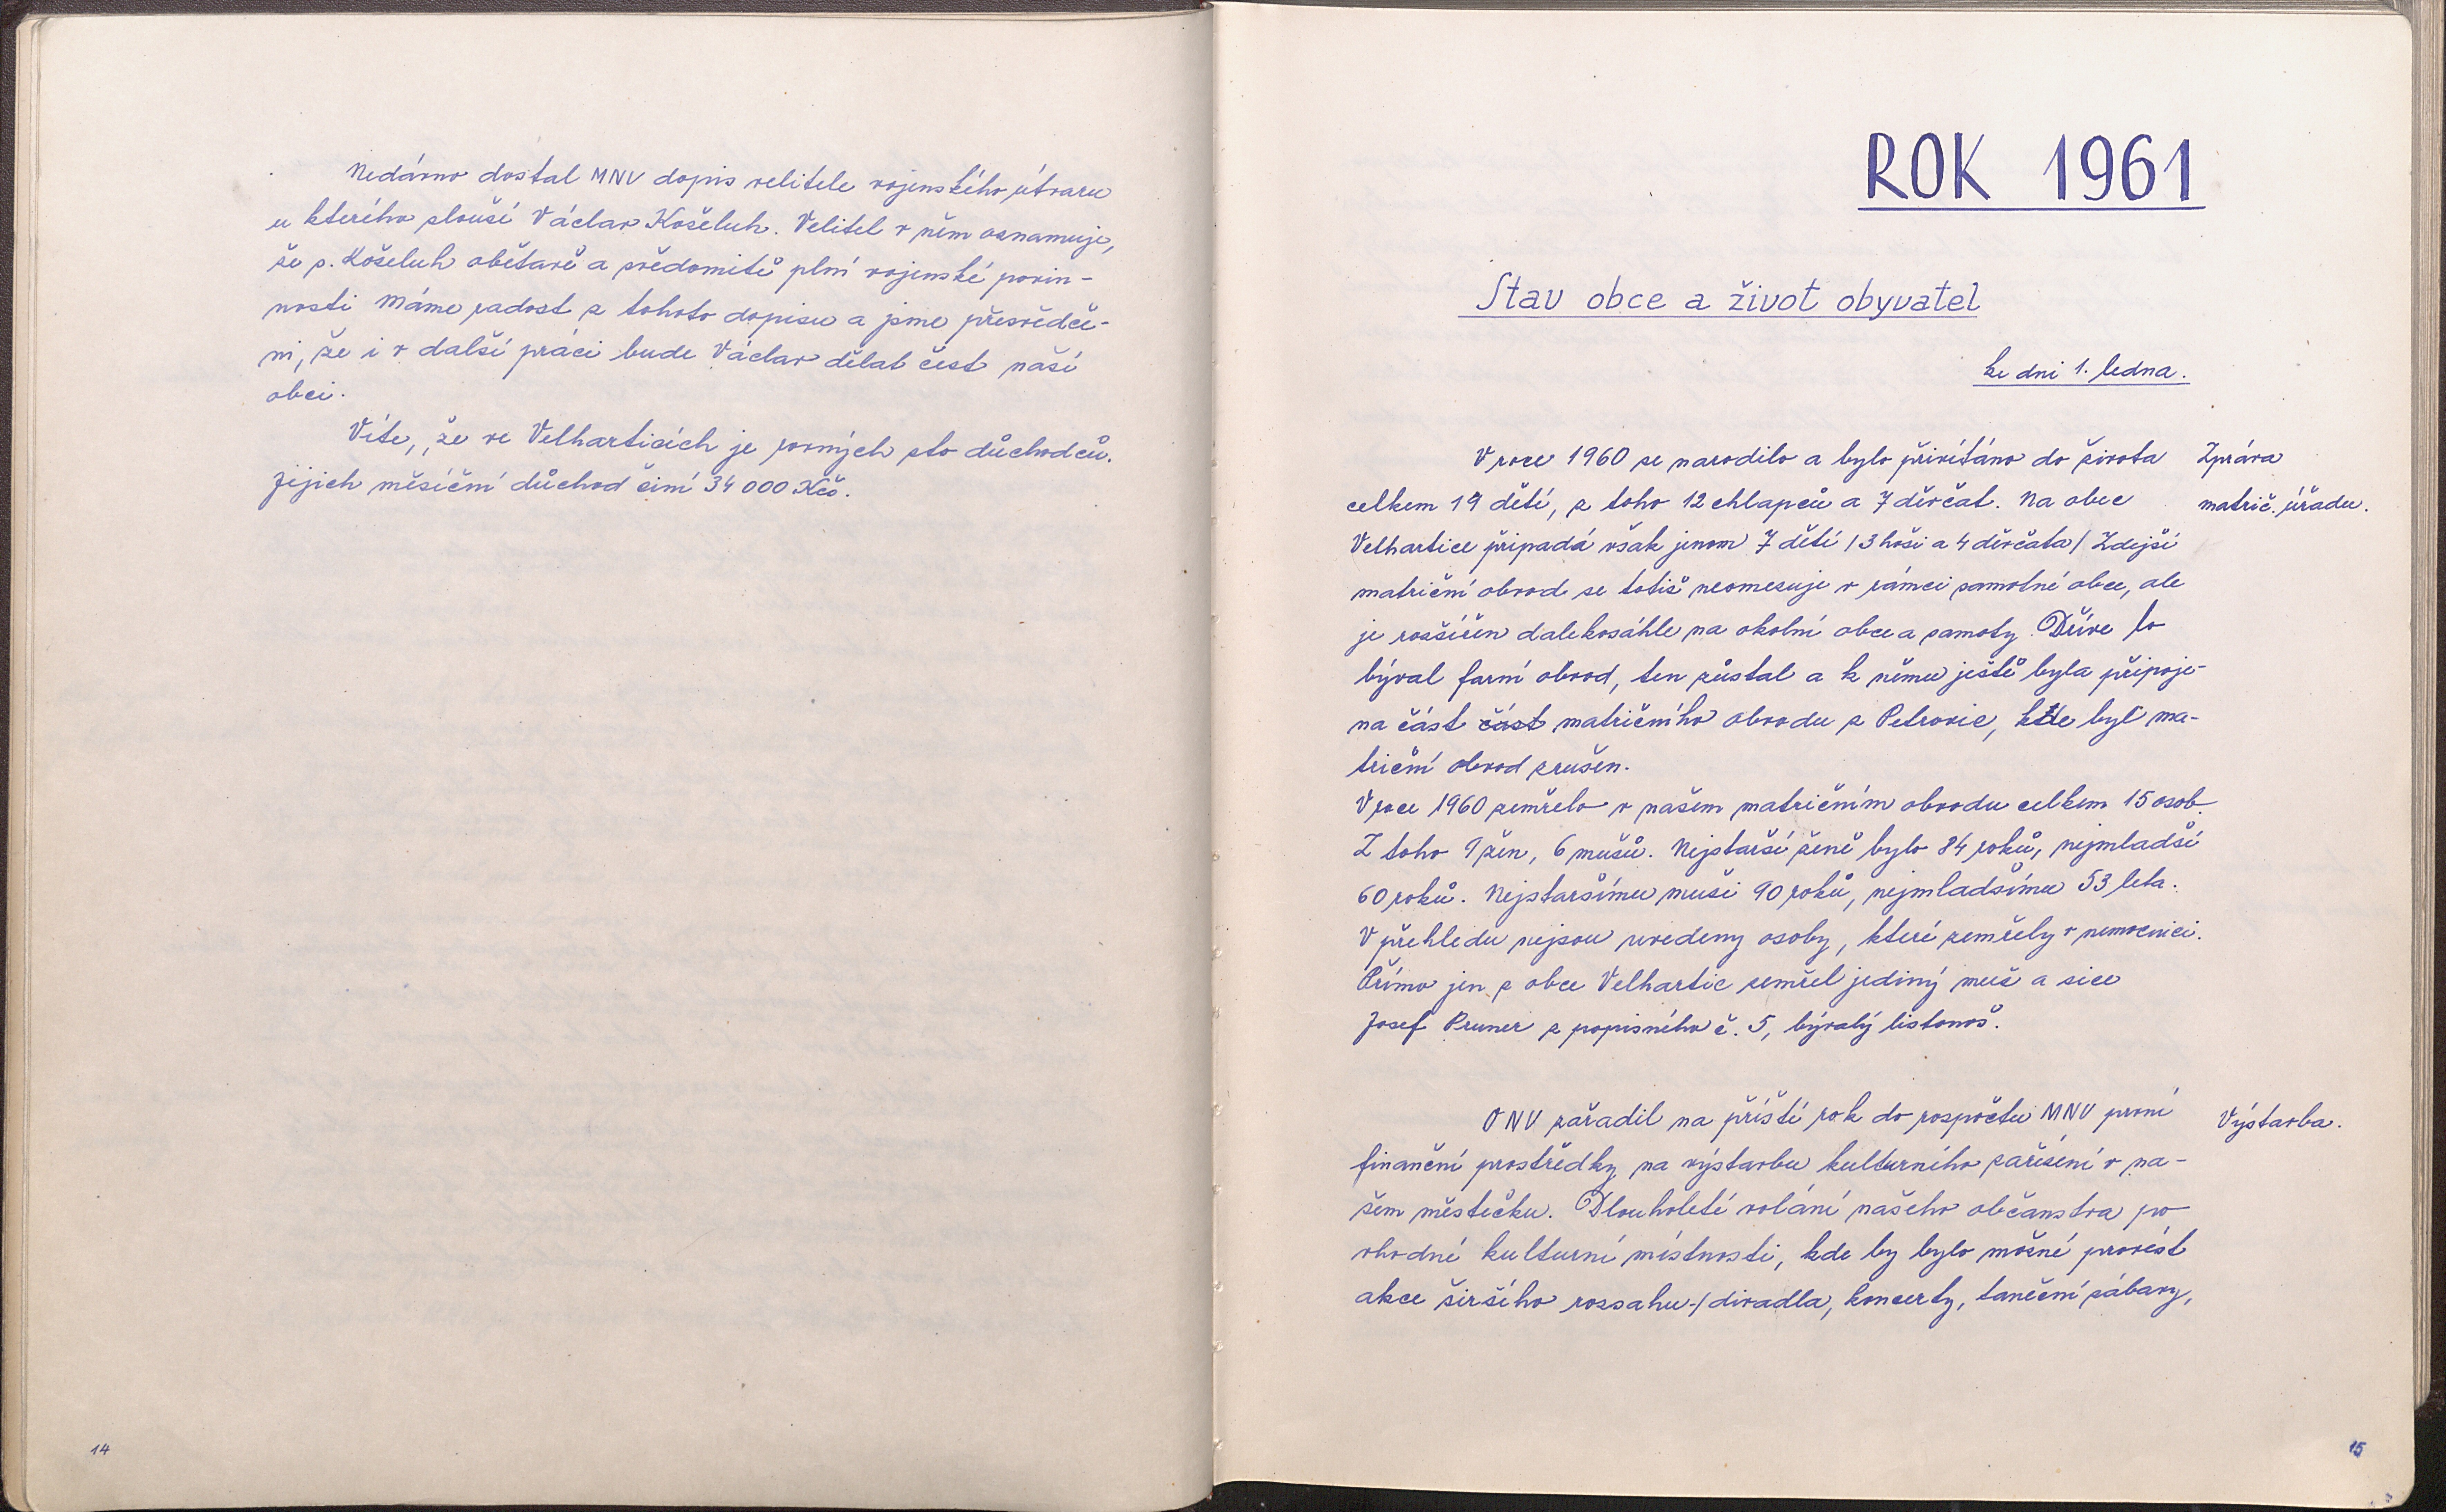 Nedávno dostal MNV dopis velitele vojenského útvaru
u kterého slouží Václav Koželuh. Velitel v něm oznamuje,
že s. Koželuh obětavě a svědomitě plní vojenské povin-
nosti Máme radost z tohoto dopisu a jsme přesvědče-
ni, že i v další práci bude Václav dělat čest naší
obci.
Víte, že ve Velharticích je rovných sto důchodců.
Jejich měsíční důchod činí 34 000 Kčs.
14
ROK 1961
Stav obce a život obyvatel
ke dni 1. ledna.
V roce 1960 se narodilo a bylo přivítáno do života
celkem 19 dětí, z toho 12 chlapců a 7 děvčat. Na obec
Velhartice připadá však jenom 7 dětí /3 hoši a 4 děvčata/ Zdejší
matriční obvod se totiž neomezuje v rámci samotné obce, ale
je rozšířen dalekosáhle na okolní obce a samoty. Dříve to
býval farní obvod, ten zůstal a k němu ještě byla připoje-
na část část matričního obvodu z Petrovic, kde byl ma-
triční obvod zrušen.
V roce 1960 zemřelo v našem matričním obvodu celkem 15 osob.
Z toho 9 žen, 6 mužů. Nejstarší ženě bylo 84 roků, nejmladší
60 roků. Nejstaršímu muži 90 roků, nejmladšímu 53 leta.
V přehledu nejsou uvedeny osoby, které zemřely v nemocnici.
Přímo jen z obce Velhartic zemřel jediný muž a sice
Josef Pruner z popisného č. 5, bývalý listonoš.
Zpráva
matrič. úřadu.
ONV zařadil na příští rok do rozpočtu MNV první
finanční prostředky na výstavbu kulturního zařízení v na-
šem městečku. Dlouholeté volání našeho občanstva po
vhodné kulturní místnosti, kde by bylo možné provést
akce širšího rozsahu-/divadla, koncerty, taneční zábavy,
Výstavba.
15